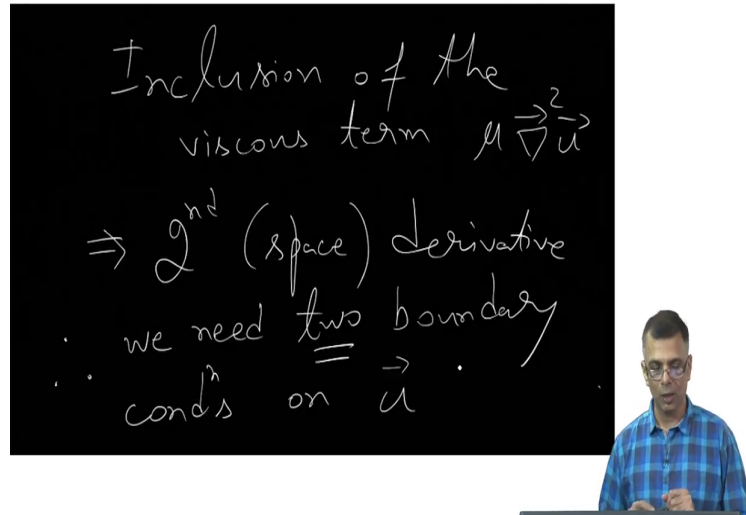 Inclusion of the
viscous term μ ∇⃗² u⃗
⇒ 2ⁿᵈ (space) derivative
∴ we need two boundary
condⁿs on u⃗ .